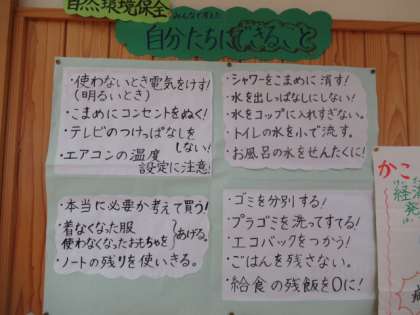 自然環境保全
みんなで考えた
自分たちにできること
・使わないとき電気をけす!
(明るいとき)
・こまめにコンセントをぬく!
・テレビのつけっぱなしを
しない!
・エアコンの温度
設定に注意!
・シャワーをこまめに消す!
・水を出しっぱなしにしない!
・水をコップに入れすぎない。
・トイレの水を小で流す。
・お風呂の水をせんたくに!
・本当に必要か考えて買う!
・着なくなった服
使わなくなったおもちゃを
あげる。
・ノートの残りを使いきる。
・ゴミを分別する!
・プラゴミを洗ってすてる!
・エコバックをつかう!
・ごはんを残さない。
・給食の残飯を0に!
かこ
経済
発